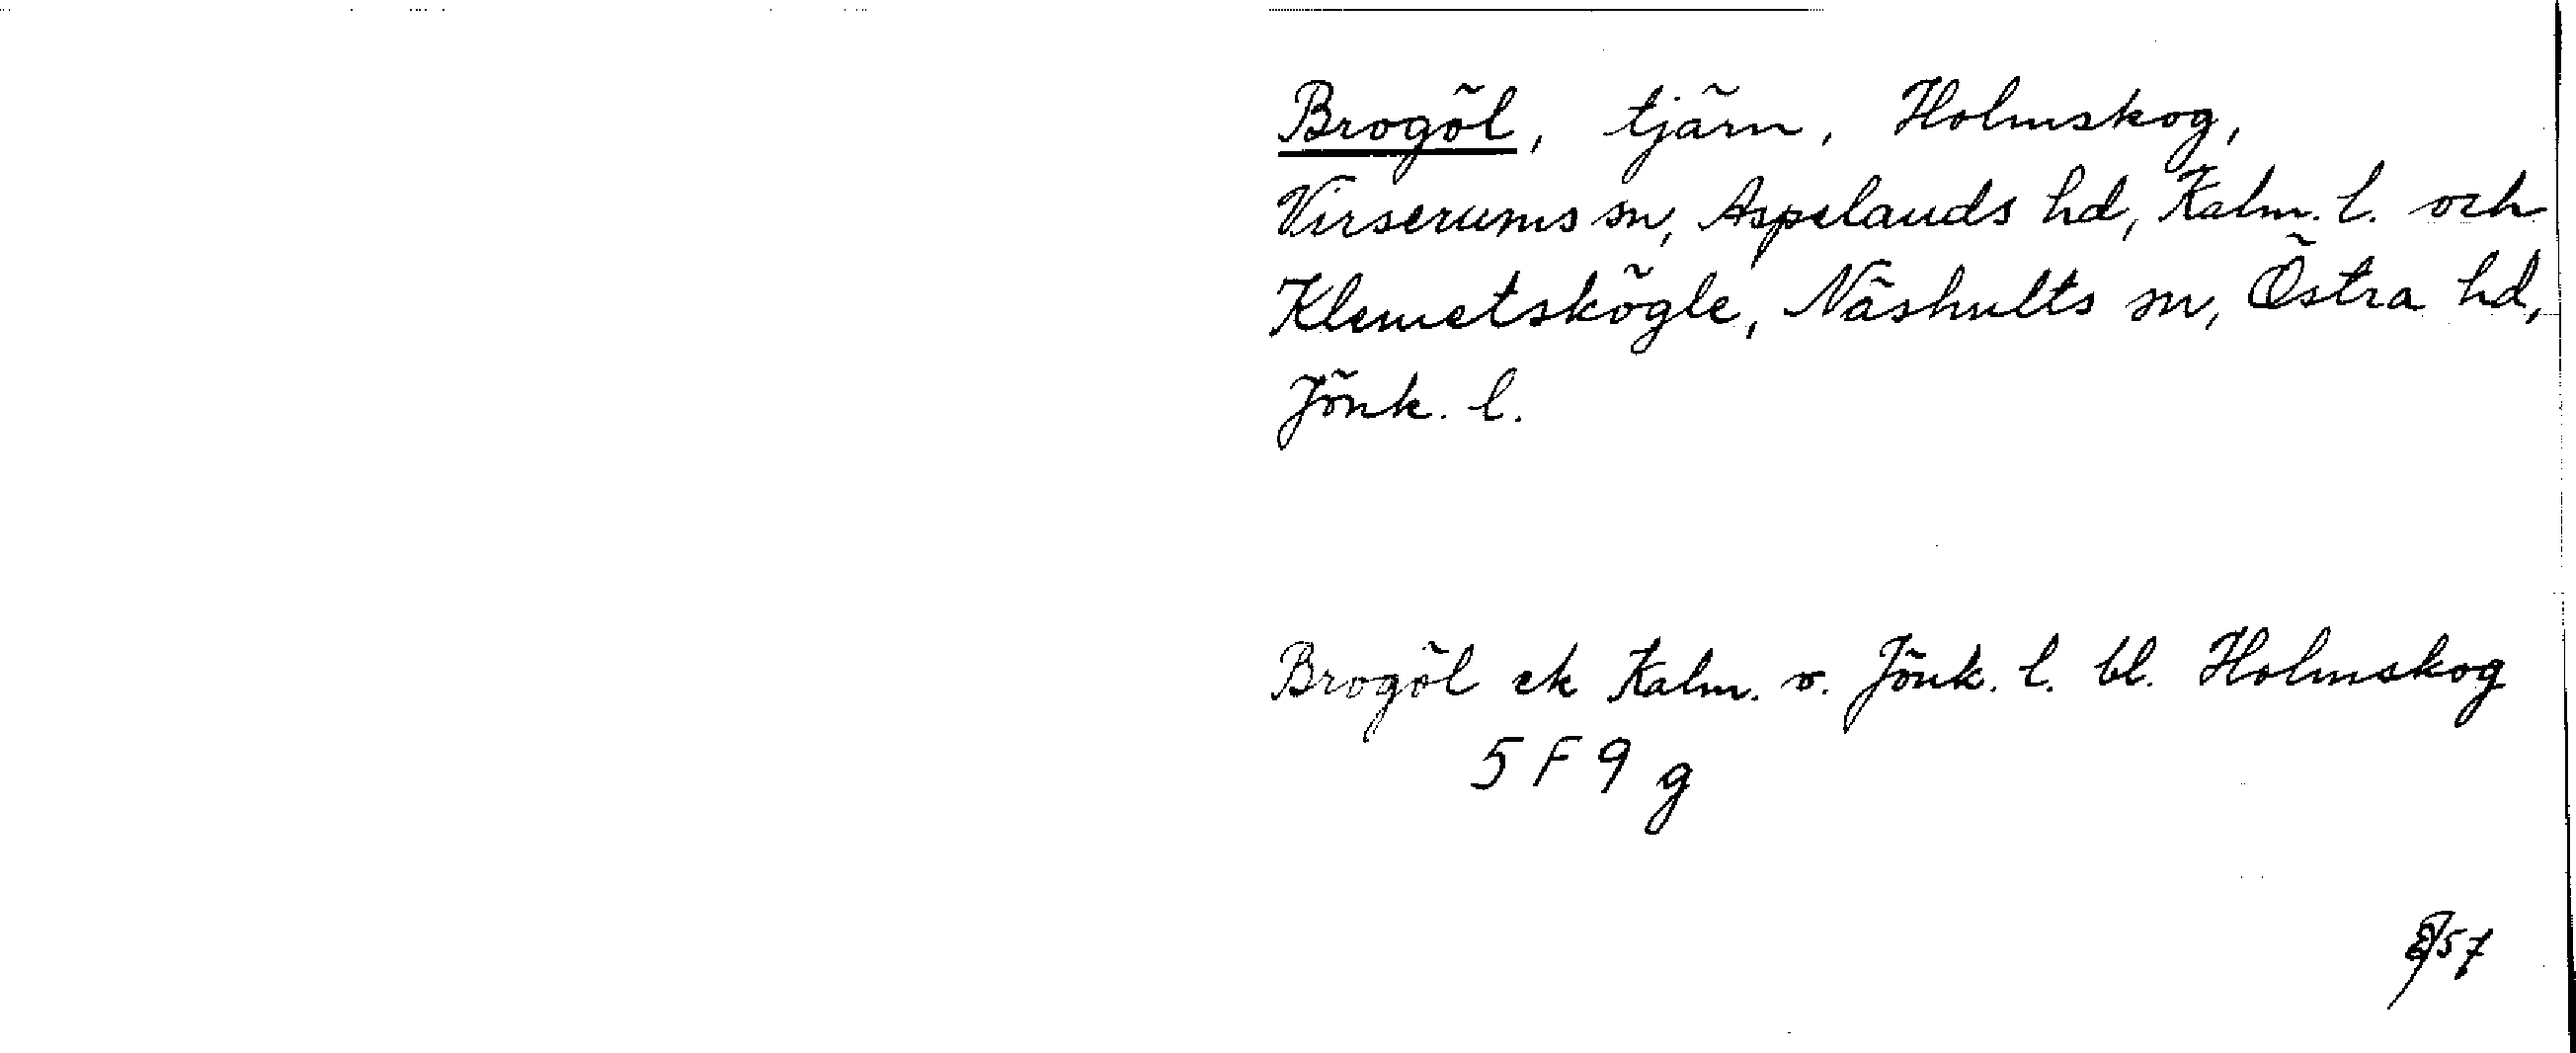 Brogöl, tjärn, Holmskog,
Virserums sn, Aspelands hd, Kalm. l. och
Klemetskögle, Näshults sn, Östra hd,
Jönk. l.
Brogöl ek Kalm. o. Jönk. l. bl. Holmskog
5 F 9 g
57